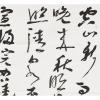 空山新雨
晚來秋明
照清泉石
喧歸浣女